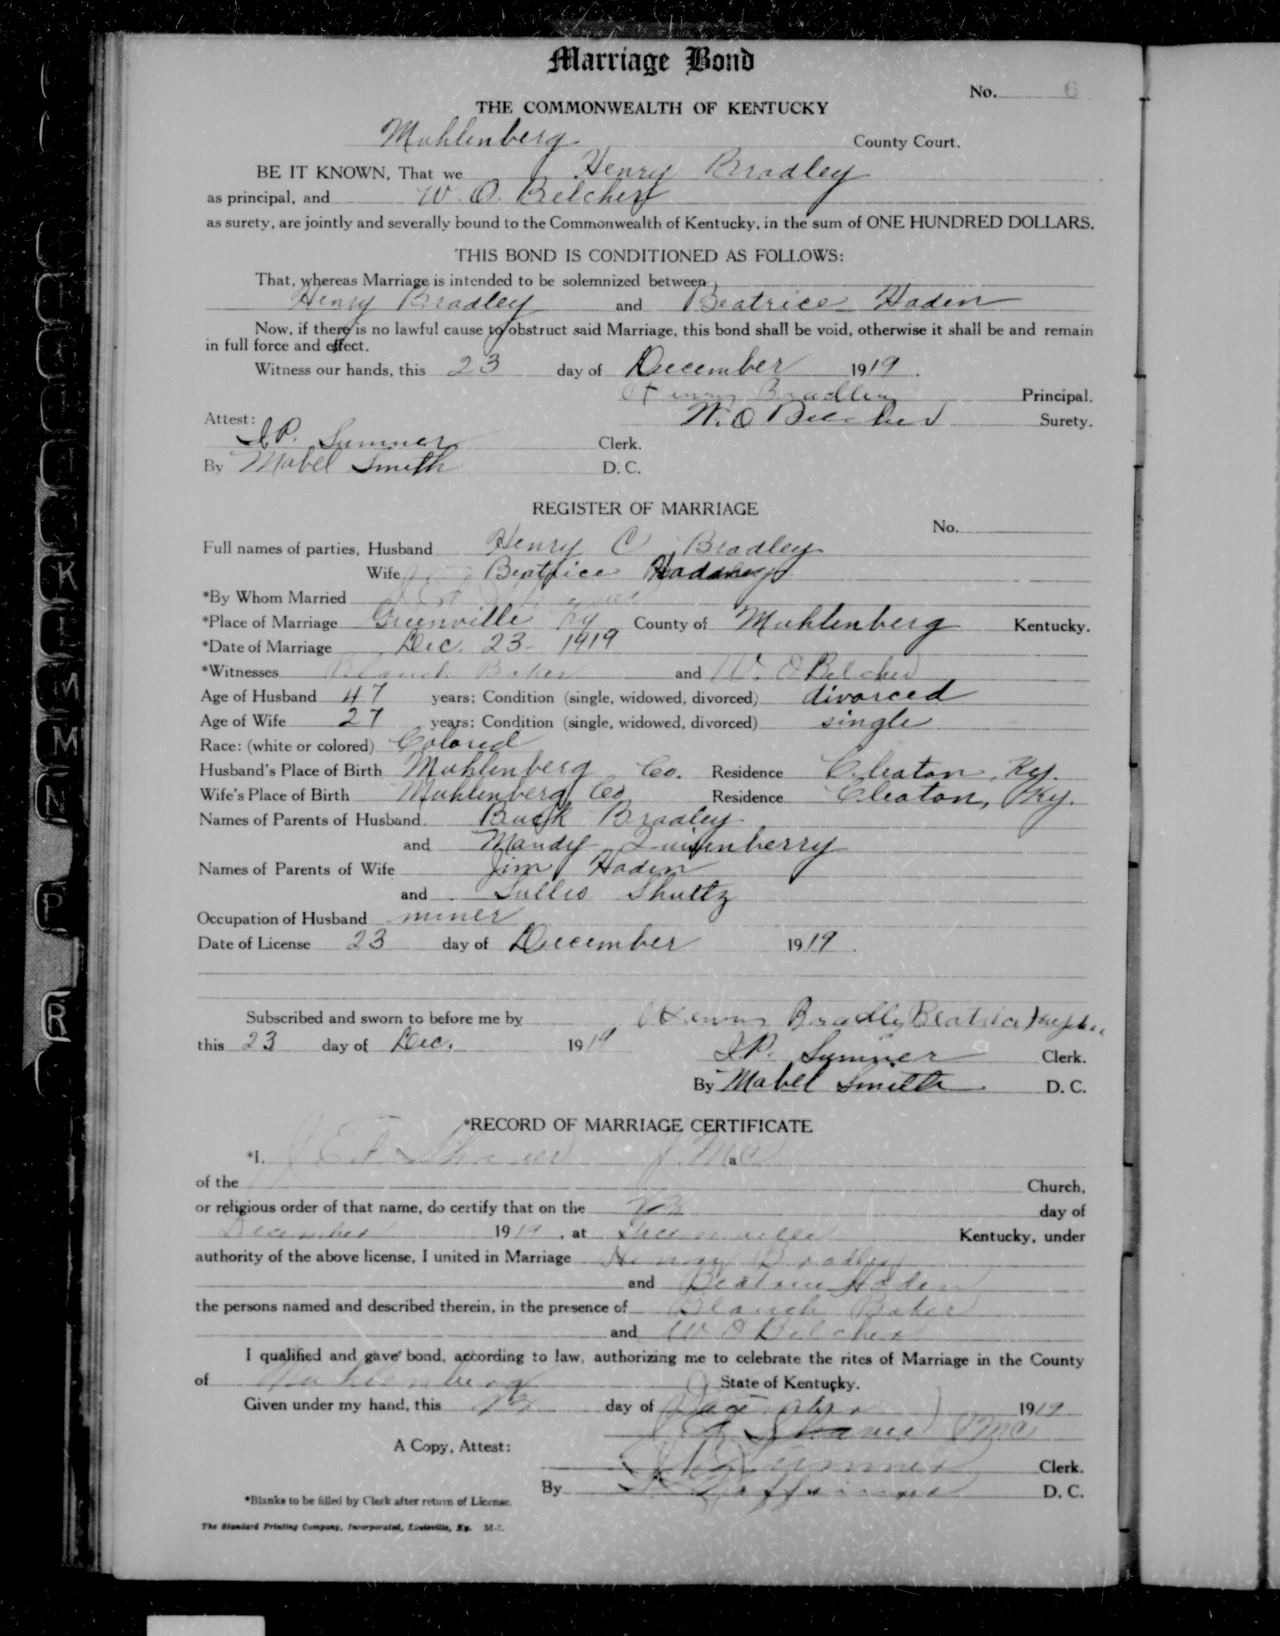 Marriage Bond
No. 6
THE COMMONWEALTH OF KENTUCKY
Muhlenberg County Court.
BE IT KNOWN, That we Henry Bradley
as principal, and W. O. Belcher
as surety, are jointly and severally bound to the Commonwealth of Kentucky, in the sum of ONE HUNDRED DOLLARS.
THIS BOND IS CONDITIONED AS FOLLOWS:
That, whereas Marriage is intended to be solemnized between
Henry Bradley and Beatrice Haden
Now, if there is no lawful cause to obstruct said Marriage, this bond shall be void, otherwise it shall be and remain
in full force and effect.
Witness our hands, this 23 day of December 1919.
Henry Bradley Principal.
Attest: W. O Belcher Surety.
J.P. Sumner Clerk.
By Mabel Smith D. C.
REGISTER OF MARRIAGE
No.
Full names of parties, Husband Henry C Bradley
Wife Beatrice
*By Whom Married
*Place of Marriage Greenville Ky County of Muhlenberg Kentucky.
*Date of Marriage Dec. 23 - 1919
*Witnesses Blanch Baker and W. O Belcher
Age of Husband 47 years; Condition (single, widowed, divorced) divorced
Age of Wife 27 years; Condition (single, widowed, divorced) single
Race: (white or colored) Colored
Husband's Place of Birth Muhlenberg Co. Residence Cleaton, Ky.
Wife's Place of Birth Muhlenberg Co Residence Cleaton, Ky.
Names of Parents of Husband Buck Bradley
and Mandy Quisenberry
Names of Parents of Wife Jim Haden
and Shultz
Occupation of Husband miner
Date of License 23 day of December 1919.
Subscribed and sworn to before me by Henry Bradley Beatrice
this 23 day of Dec. 1919
J.P. Sumner Clerk.
By Mabel Smith D. C.
*RECORD OF MARRIAGE CERTIFICATE
*I, J Ed Shaver J. M C a
of the Church,
or religious order of that name, do certify that on the 23 day of
December 1919, at Greenville Kentucky, under
authority of the above license, I united in Marriage Henry Bradley
and Beatrice Haden
the persons named and described therein, in the presence of Blanch Baker
and W O Belcher
I qualified and gave bond, according to law, authorizing me to celebrate the rites of Marriage in the County
of Muhlenberg State of Kentucky.
Given under my hand, this 23 day of December 1919
J Ed Shaver J M C
A Copy, Attest:
J P Sumner Clerk.
By D. C.
*Blanks to be filled by Clerk after return of License.
The Standard Printing Company, Incorporated, Louisville, Ky. M-2.
K
L
M
M
N
P
R